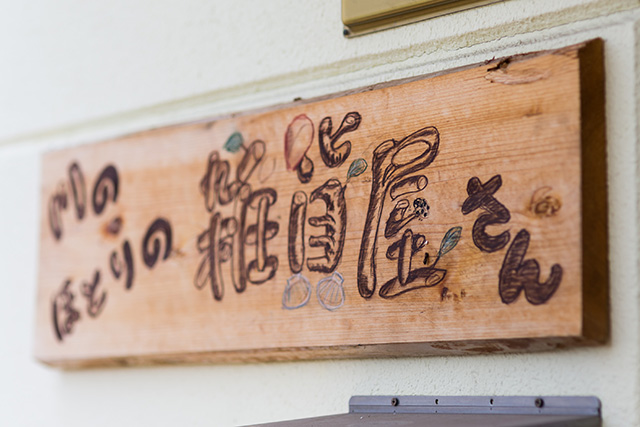 川の
ほとりの
雑貨屋さん